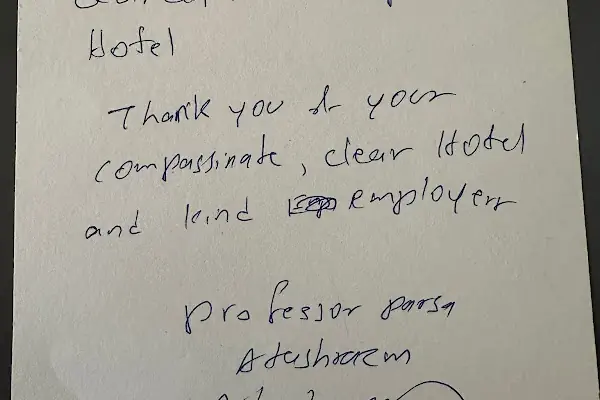 Hotel
Thank you & your
compassinate, clear Hotel
and kind employers
professor parsa